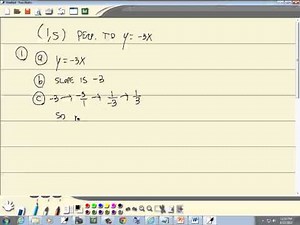 (1,5) PERP. TO y=-3x
① ⓐ y=-3x
ⓑ SLOPE IS -3
ⓒ -3 → -3/1 → 1/-3 → 1/3
SO